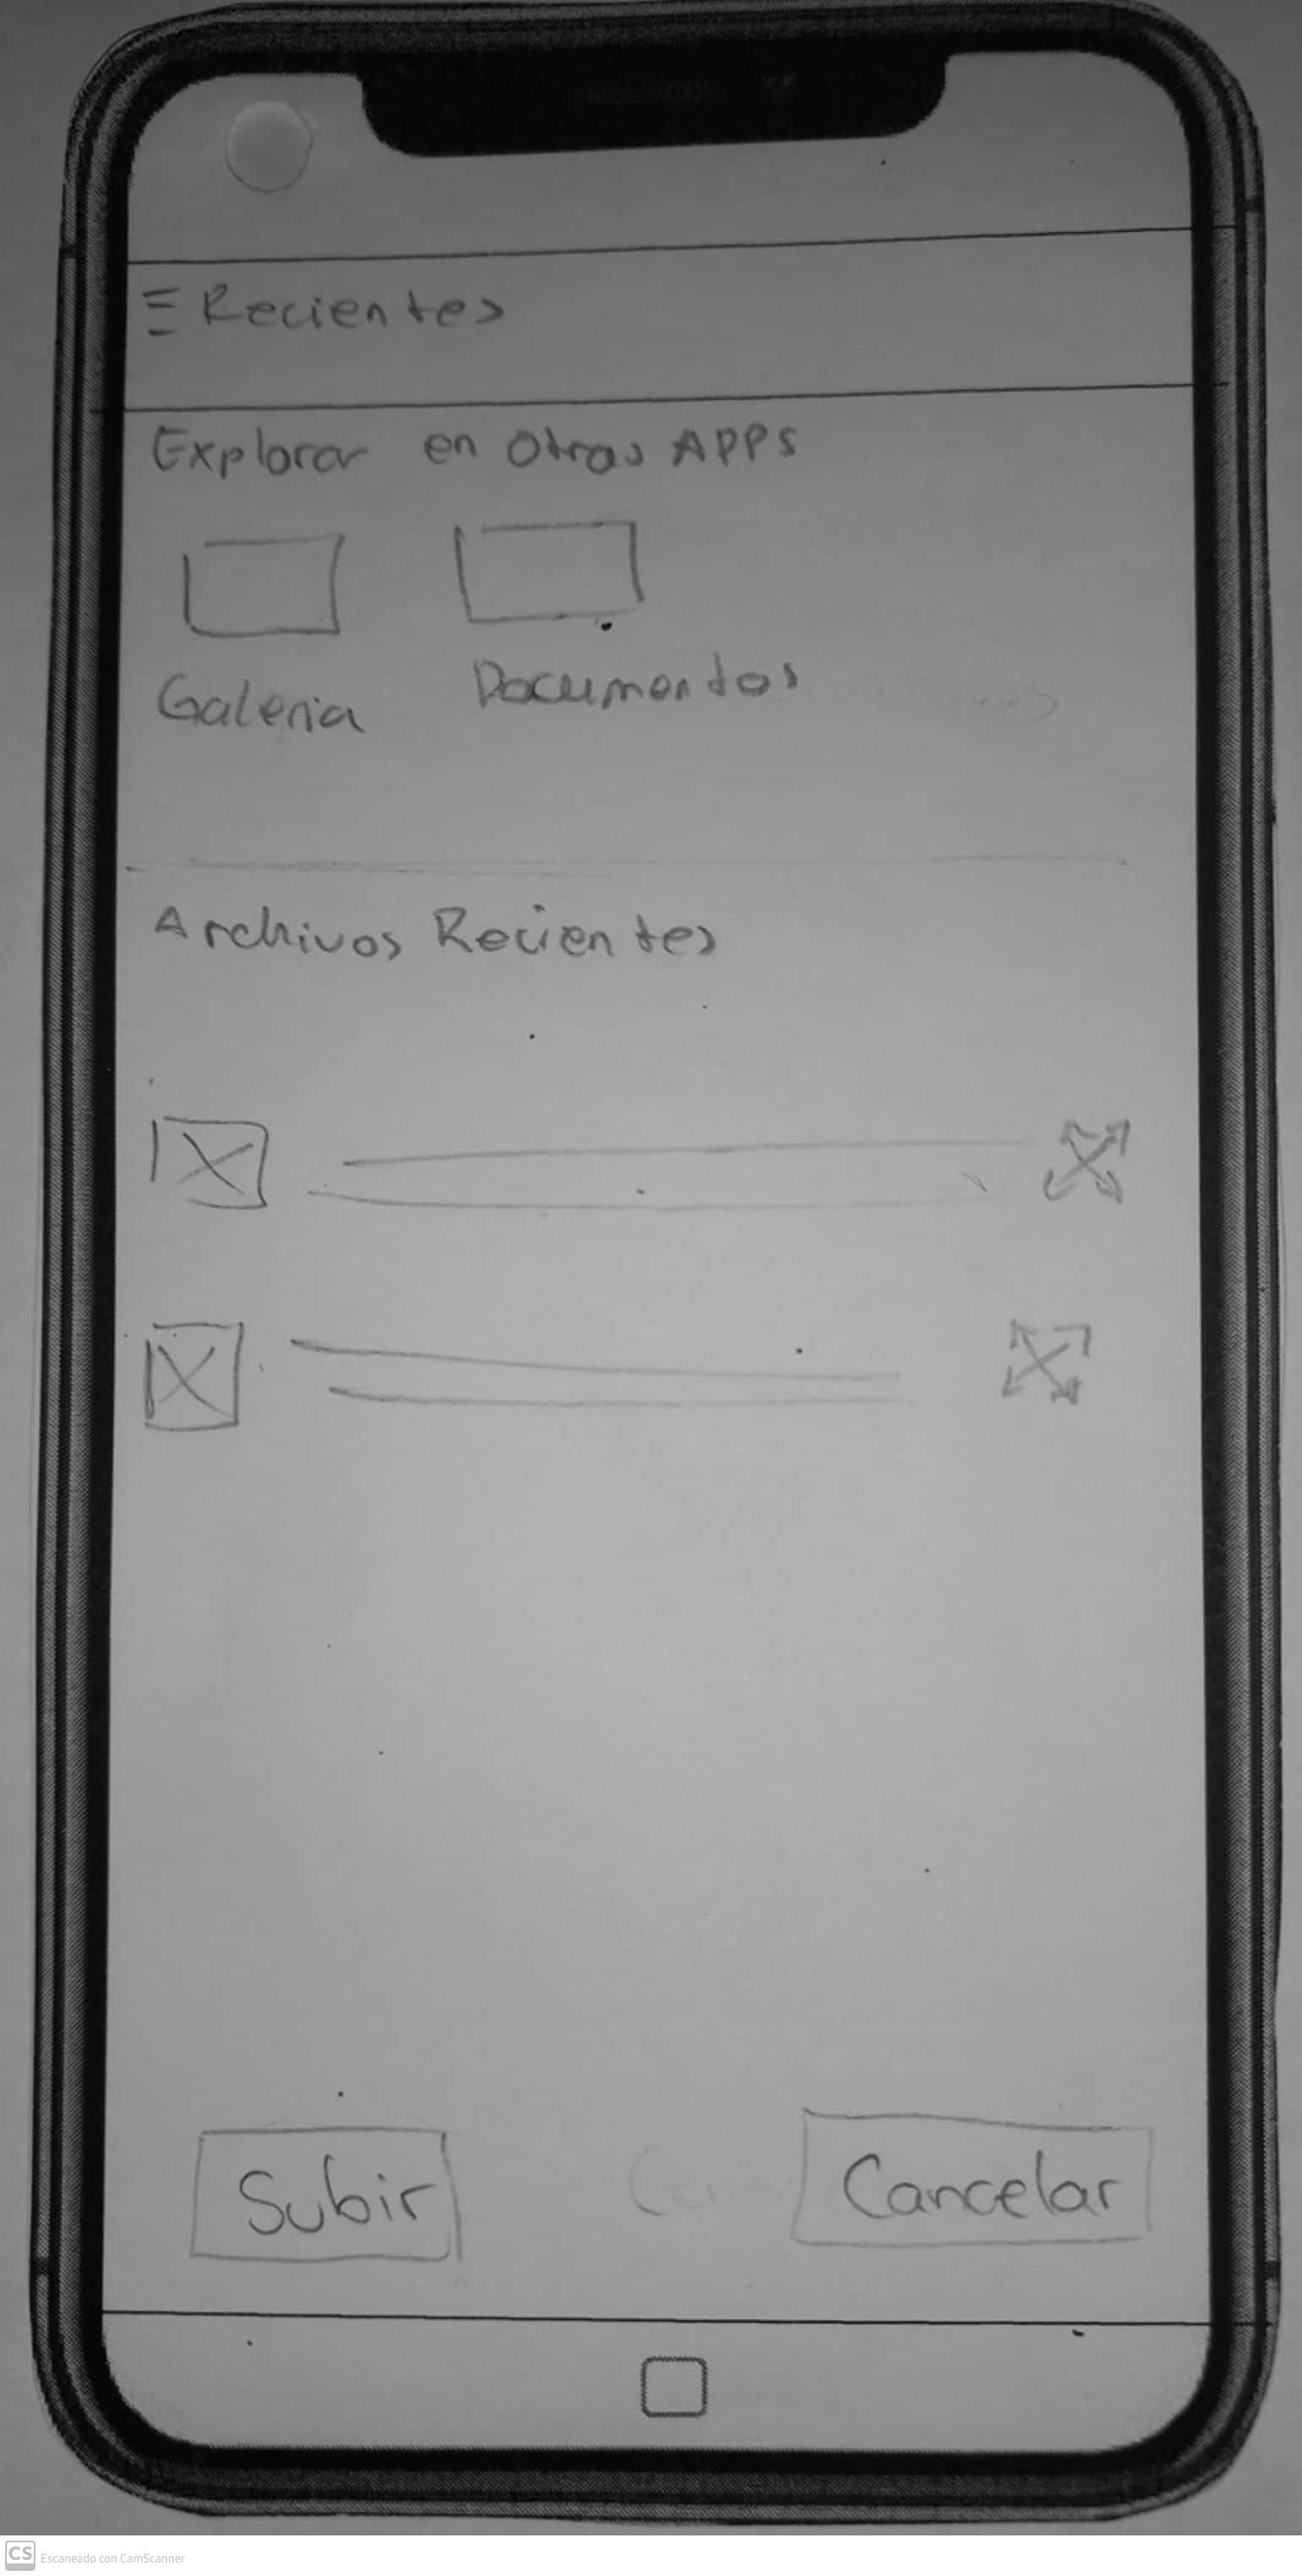 Recientes
Explorar en Otras APPS
Galeria Documentos
Archivos Recientes
Subir Cancelar
CS Escaneado con CamScanner